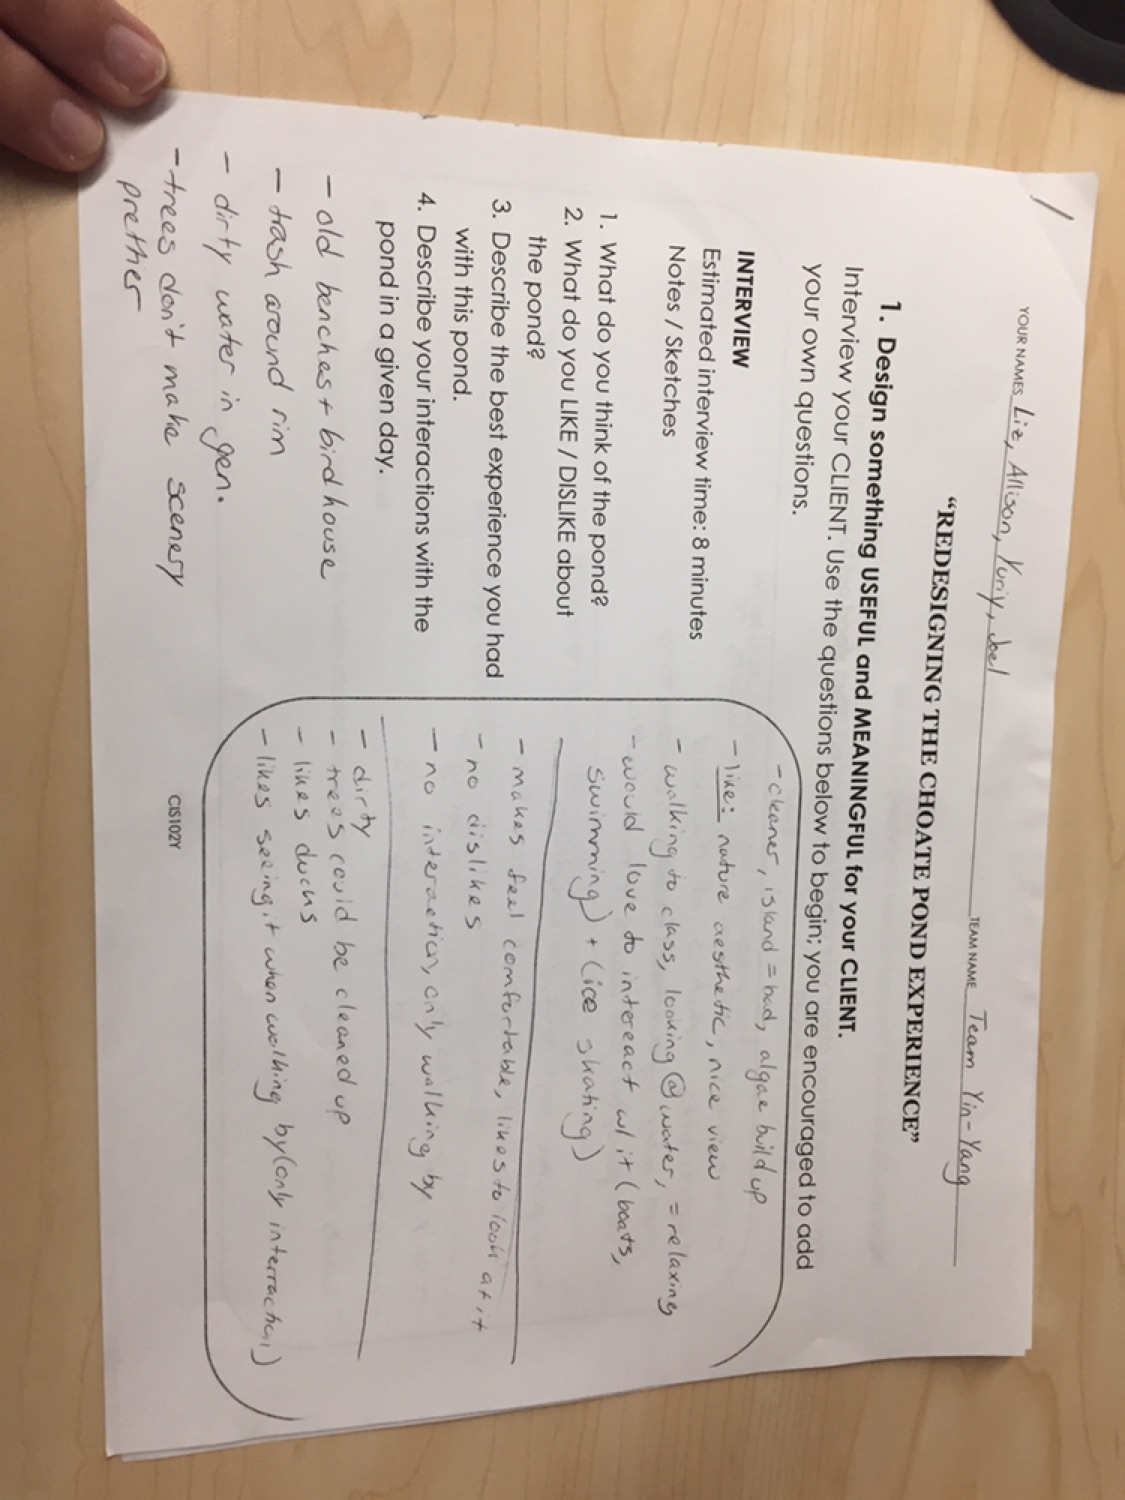 /
YOUR NAMES Liz, Allison, Yuriy, Joel
TEAM NAME Team Yin-Yang
"REDESIGNING THE CHOATE POND EXPERIENCE"
1. Design something USEFUL and MEANINGFUL for your CLIENT.
Interview your CLIENT. Use the questions below to begin; you are encouraged to add
your own questions.
INTERVIEW
Estimated interview time: 8 minutes
Notes / Sketches
1. What do you think of the pond?
2. What do you LIKE / DISLIKE about
the pond?
3. Describe the best experience you had
with this pond.
4. Describe your interactions with the
pond in a given day.
- old benches + bird house
- trash around rim
- dirty water in gen.
- trees don't make scenery
prettier
- cleaner, island = bad, algae build up
- like: nature aesthetic, nice view
- walking to class, looking @ water, = relaxing
- would love to intereact w/ it (boats,
swimming) + (ice skating)
- makes feel comfortable, likes to look at it
- no dislikes
- no interaction, only walking by
- dirty
- trees could be cleaned up
- likes ducks
- likes seeing it when walking by (only interraction)
CIS102Y